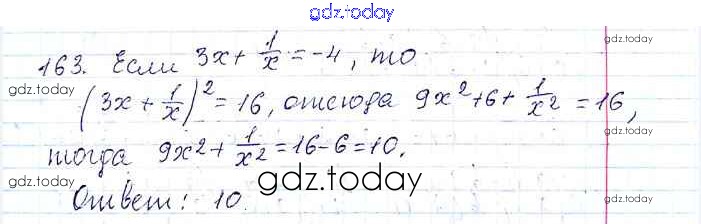 gdz.today
163. Если 3x + 1/x = -4, то gdz.today
(3x + 1/x)² = 16, отсюда 9x² + 6 + 1/x² = 16,
gdz.today
тогда 9x² + 1/x² = 16 - 6 = 10.
gdz.today gdz.today gdz.today
Ответ: 10.